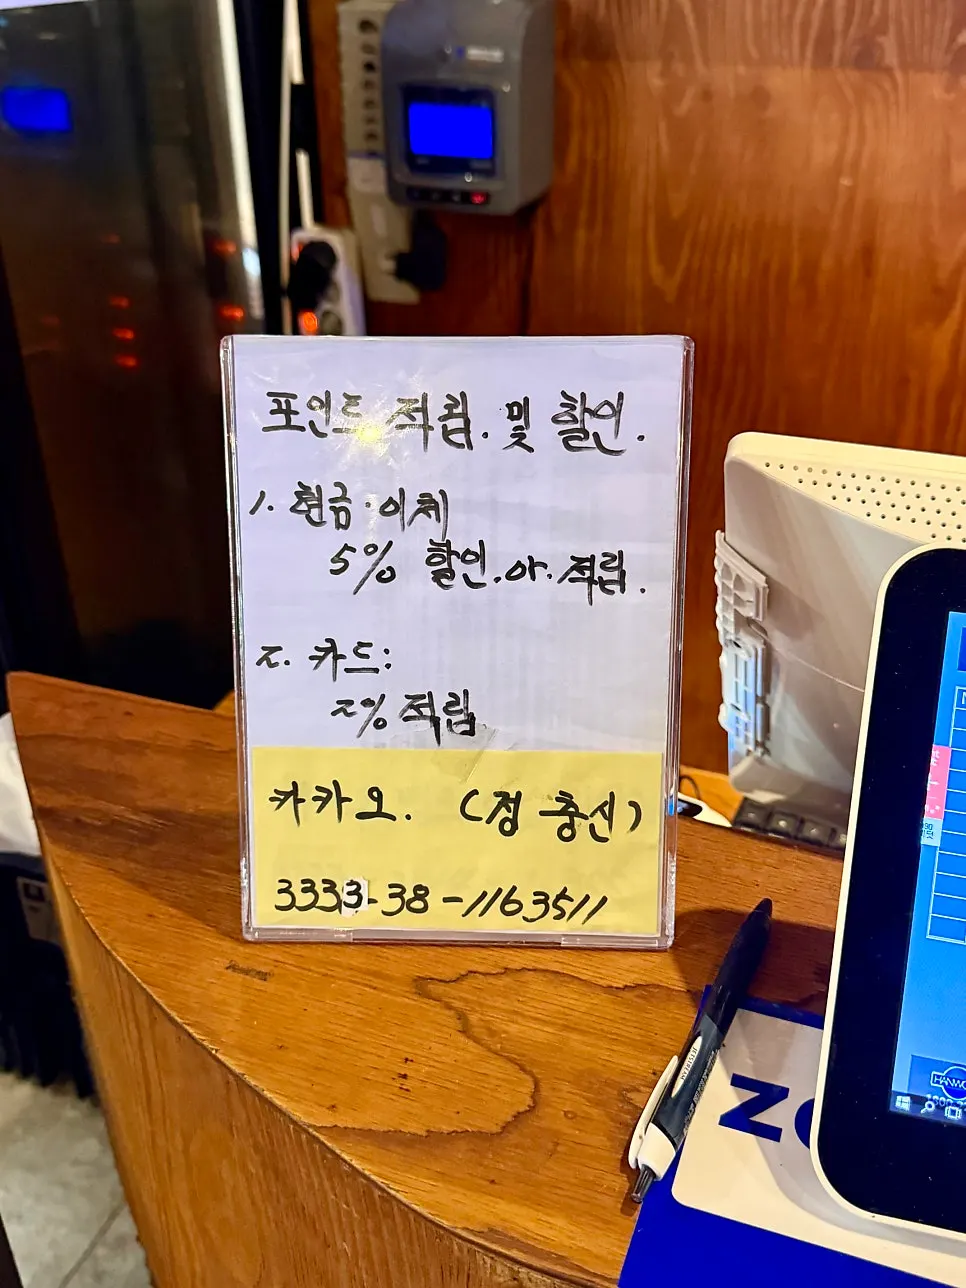 포인트 적립. 및 할인.
1. 현금·이체
5% 할인. or. 적립.
2. 카드:
2% 적립
카카오. (정 충신)
3333-38-1163511